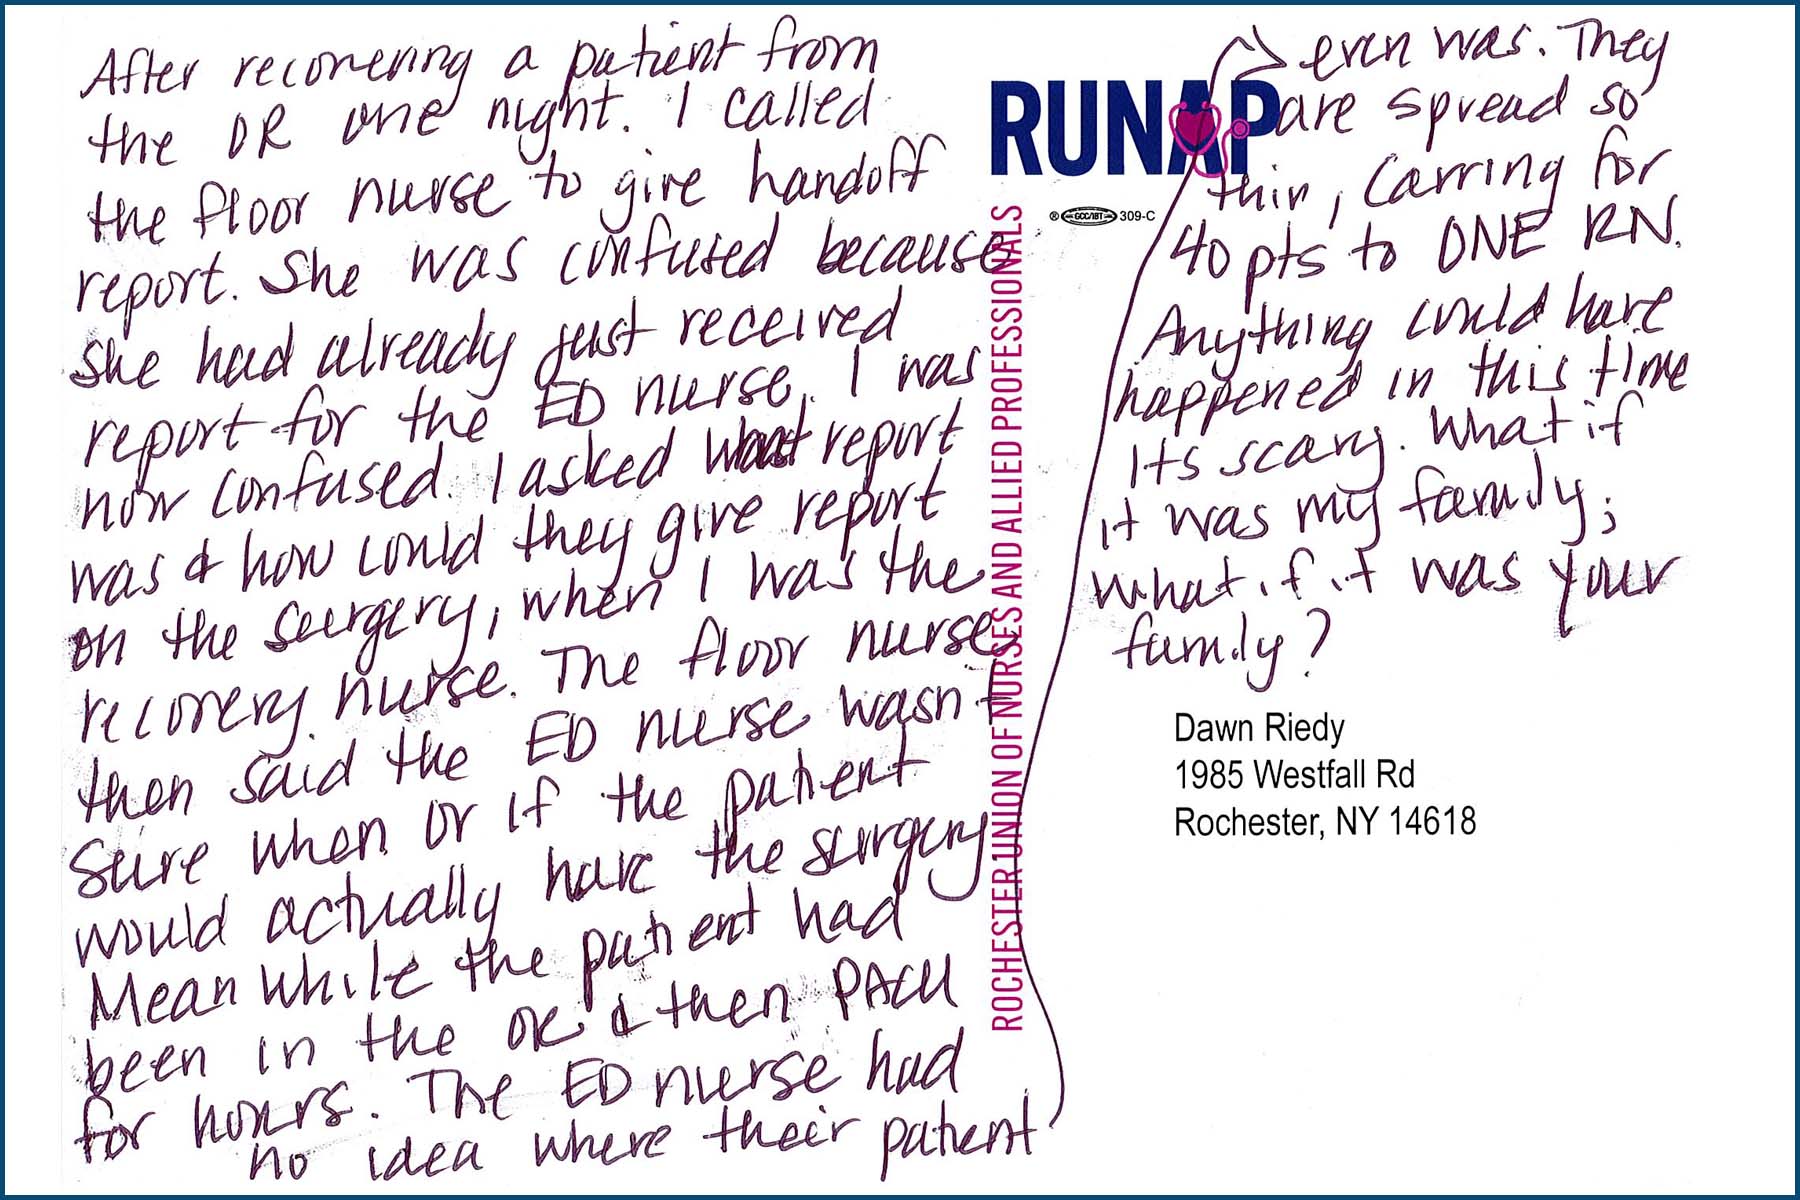 After recovering a patient from
the OR one night. I called
the floor nurse to give handoff
report. She was confused because
she had already just received
report for the ED nurse. I was
now confused. I asked what report
was & how could they give report
on the surgery, when I was the
recovery nurse. The floor nurse
then said the ED nurse wasn't
sure when or if the patient
would actually have the surgery
Mean while the patient had
been in the OR & then PACU
for hours. The ED nurse had
no idea where their patient
even was. They
are spread so
thin, Carring for
40 pts to ONE RN.
Anything could have
happened in this time
Its scary. What if
it was my family;
what if it was your
family?
RUNAP
® GCC/IBT 309-C
ROCHESTER UNION OF NURSES AND ALLIED PROFESSIONALS
Dawn Riedy
1985 Westfall Rd
Rochester, NY 14618